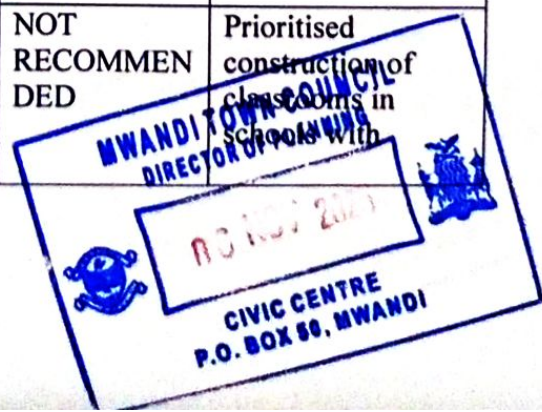 NOT
RECOMMEN
DED
Prioritised
construction of
classrooms in
schools with
MWANDI TOWN COUNCIL
DIRECTOR OF PLANNING
NOV
CIVIC CENTRE
P.O. BOX 50, MWANDI